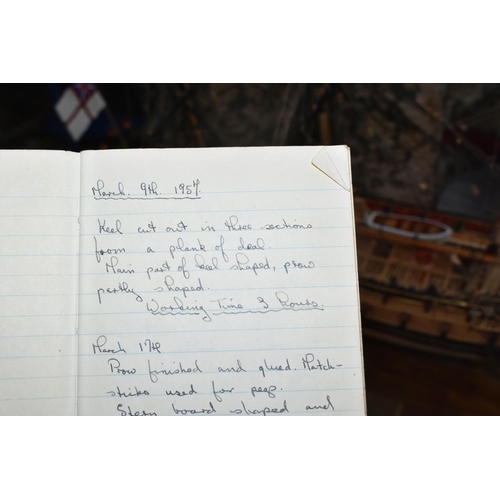 March. 9th. 1957.
Keel cut out in three sections
from a plank of deal.
Main part of keel shaped, prow
partly shaped.
Working Time 3 hours.
March 17th
Prow finished and glued. Match-
sticks used for pegs.
Stern board shaped and